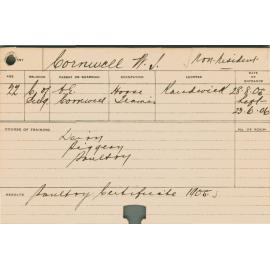 Cornwell W. J. Non-Resident
AGE RELIGION PARENT OR GUARDIAN OCCUPATION ADDRESS DATE OF ENTRANCE
22 C of Eng C.E. Cornwell Horse Trainer Randwick 28.8.05
Left
23.6.06
COURSE OF TRAINING No. OF ROOM
Dairy
Piggery
Poultry
RESULTS Poultry Certificate 1905